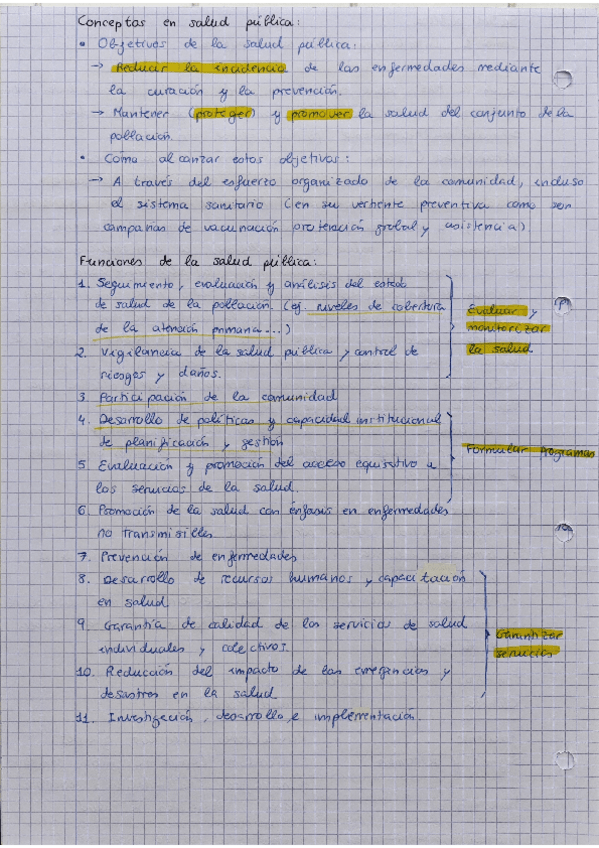 Conceptos en salud pública:
• Objetivos de la salud pública:
→ Reducir la incidencia de las enfermedades mediante
la curación y la prevención.
→ Mantener (proteger) y promover la salud del conjunto de la
población.
• Como alcanzar estos objetivos:
→ A través del esfuerzo organizado de la comunidad, incluso
el sistema sanitario (en su vertiente preventiva como son
campañas de vacunación protección global y asistencia)
Funciones de la salud pública:
1. Seguimiento, evaluación y análisis del estado
de salud de la población. (ej. niveles de cobertura
de la atención primaria...)
2. Vigilancia de la salud pública y control de
riesgos y daños.
Evaluar y
monitorizar
la salud
3. Participación de la comunidad
4. Desarrollo de políticas y capacidad institucional
de planificación y gestión
5. Evaluación y promoción del acceso equitativo a
los servicios de la salud.
Formular Programas
6. Promoción de la salud con énfasis en enfermedades
no transmisibles
7. Prevención de enfermedades
8. Desarrollo de recursos humanos y capacitación
en salud
9. Garantía de calidad de los servicios de salud
individuales y colectivos.
10. Reducción del impacto de las emergencias y
desastres en la salud
Garantizar
servicios
11. Investigación, desarrollo, e implementación.